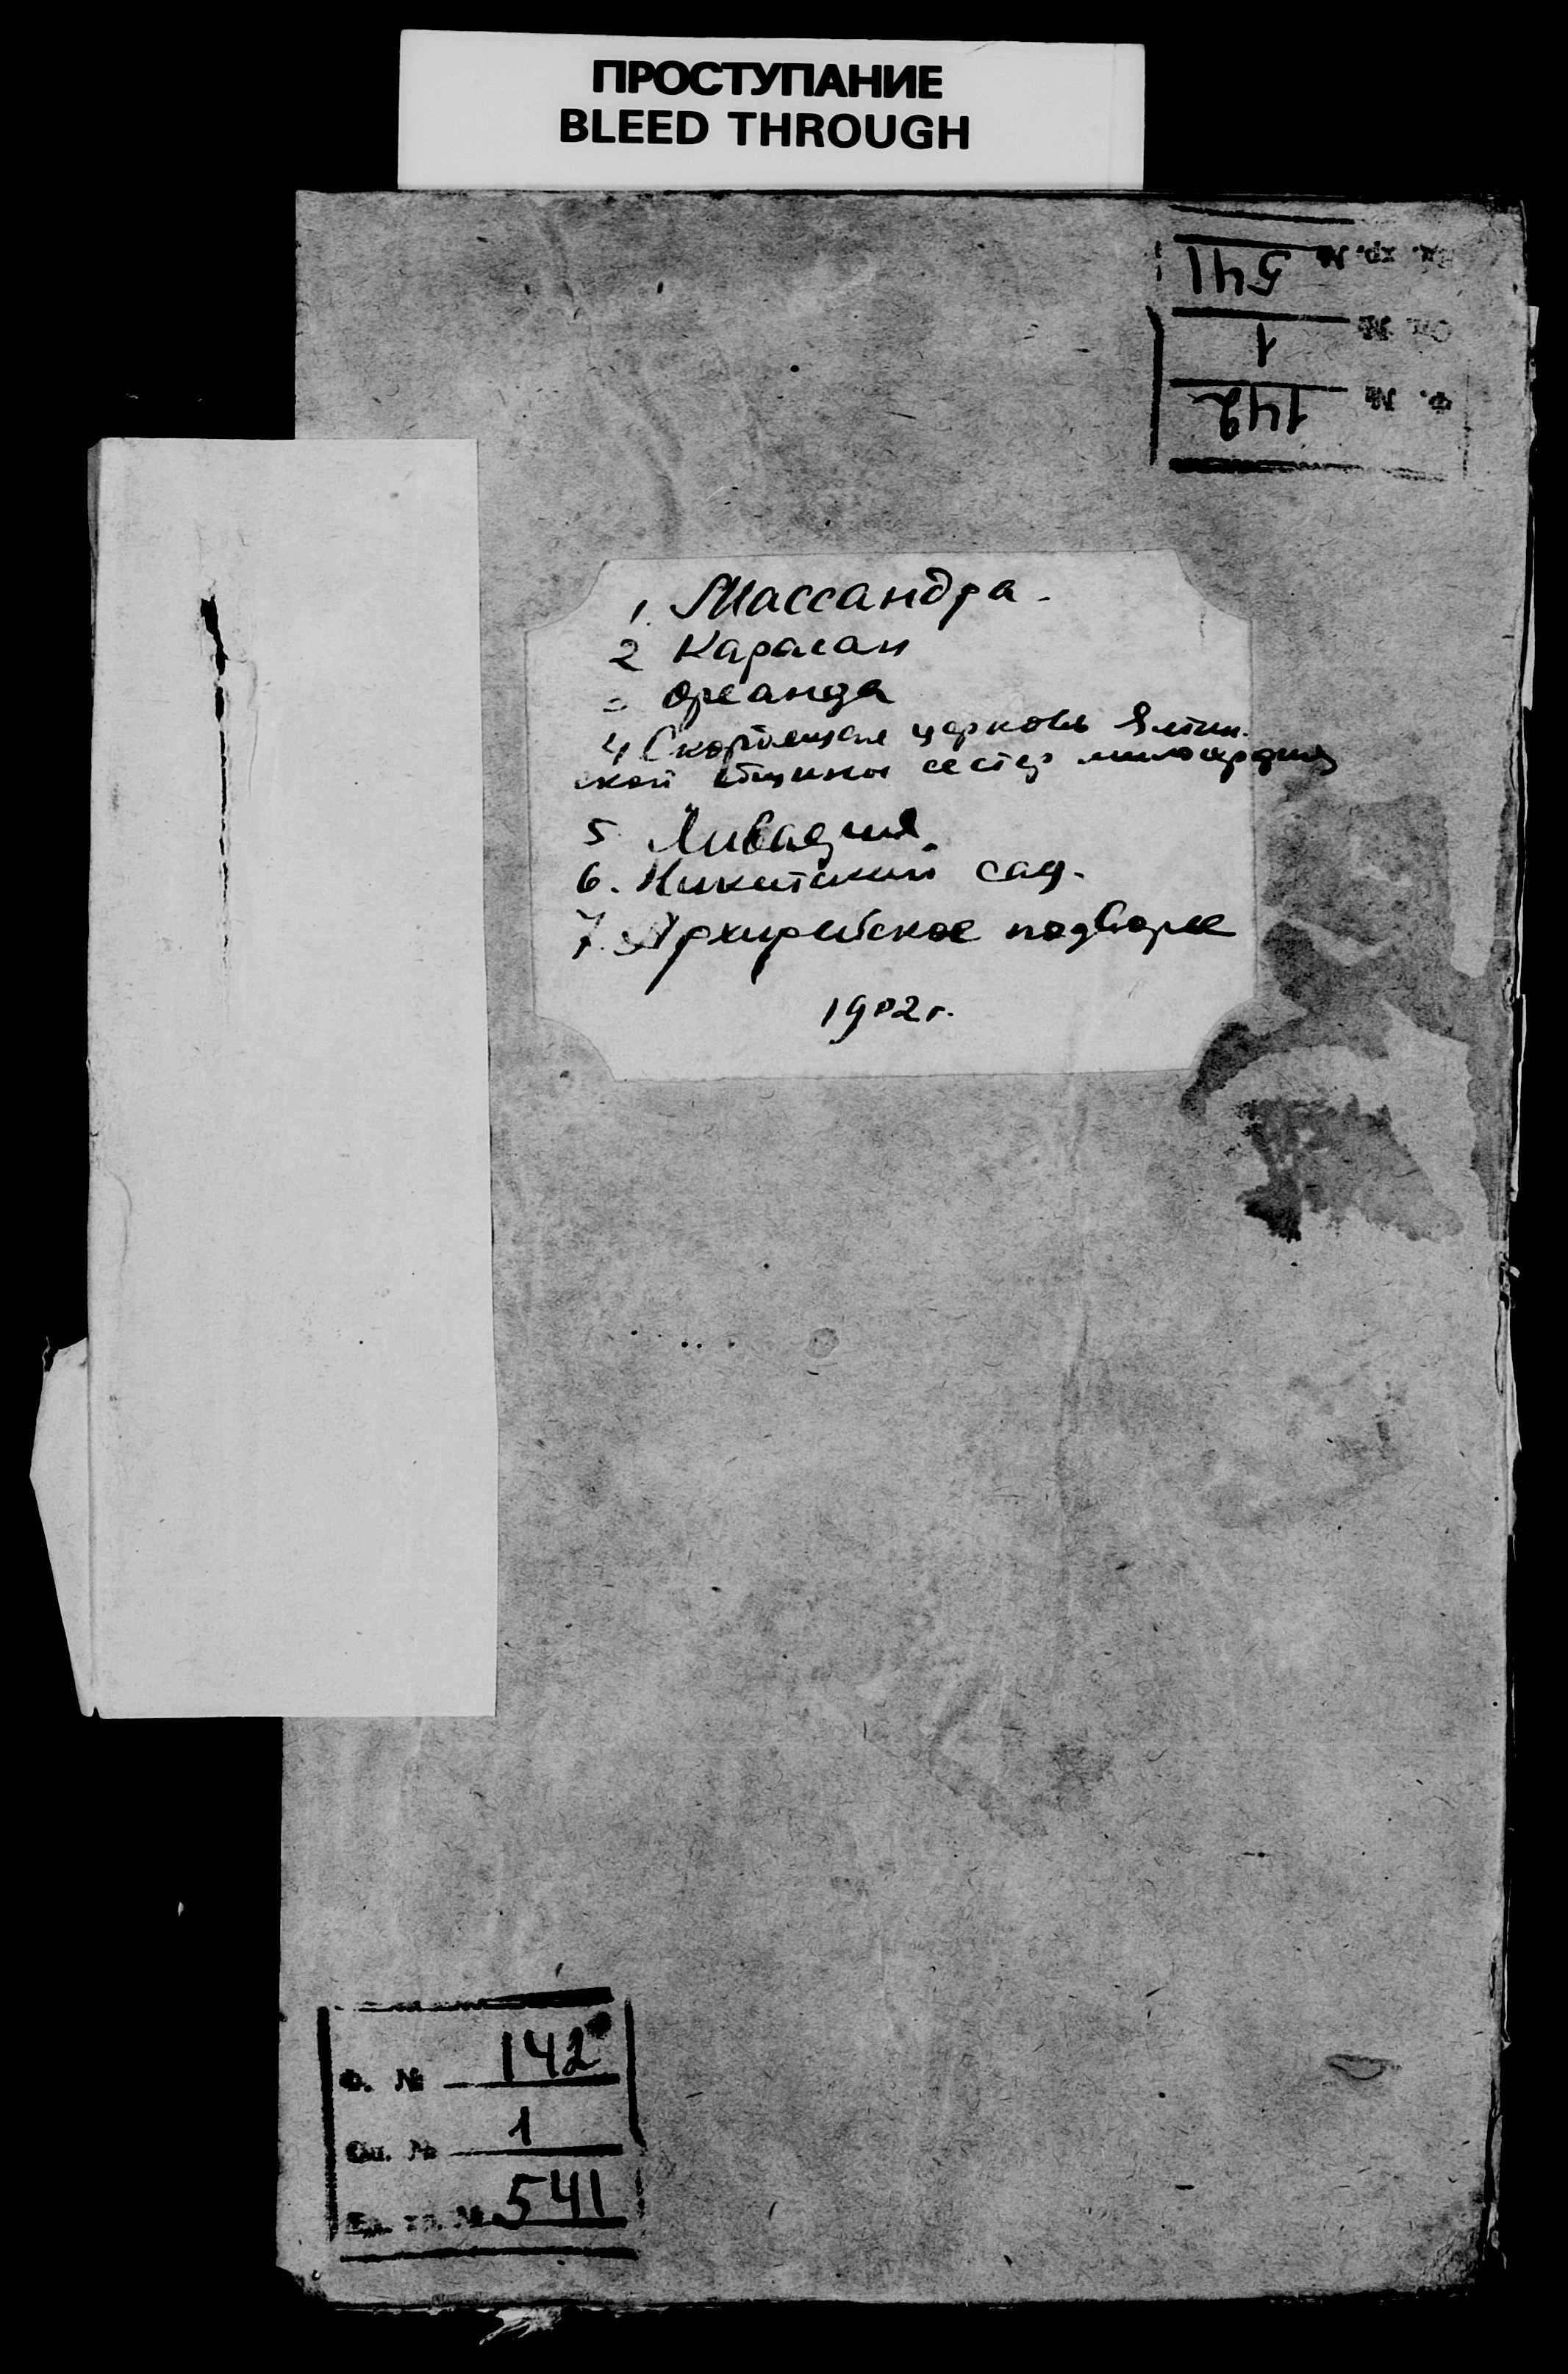 ПРОСТУПАНИЕ
BLEED THROUGH
Ед. хр. № 541
Оп. № 1
Ф. № 142
1. Массандра.
2 Карасан
3 Ореанда
4 Скорбящая церковь Ялтин.
ской общины сестер милосердия
5 Ливадия
6. Никитский сад.
7. Архирейское подворье
1902 г.
Ф. № 142
Оп. № 1
Ед. хр. № 541